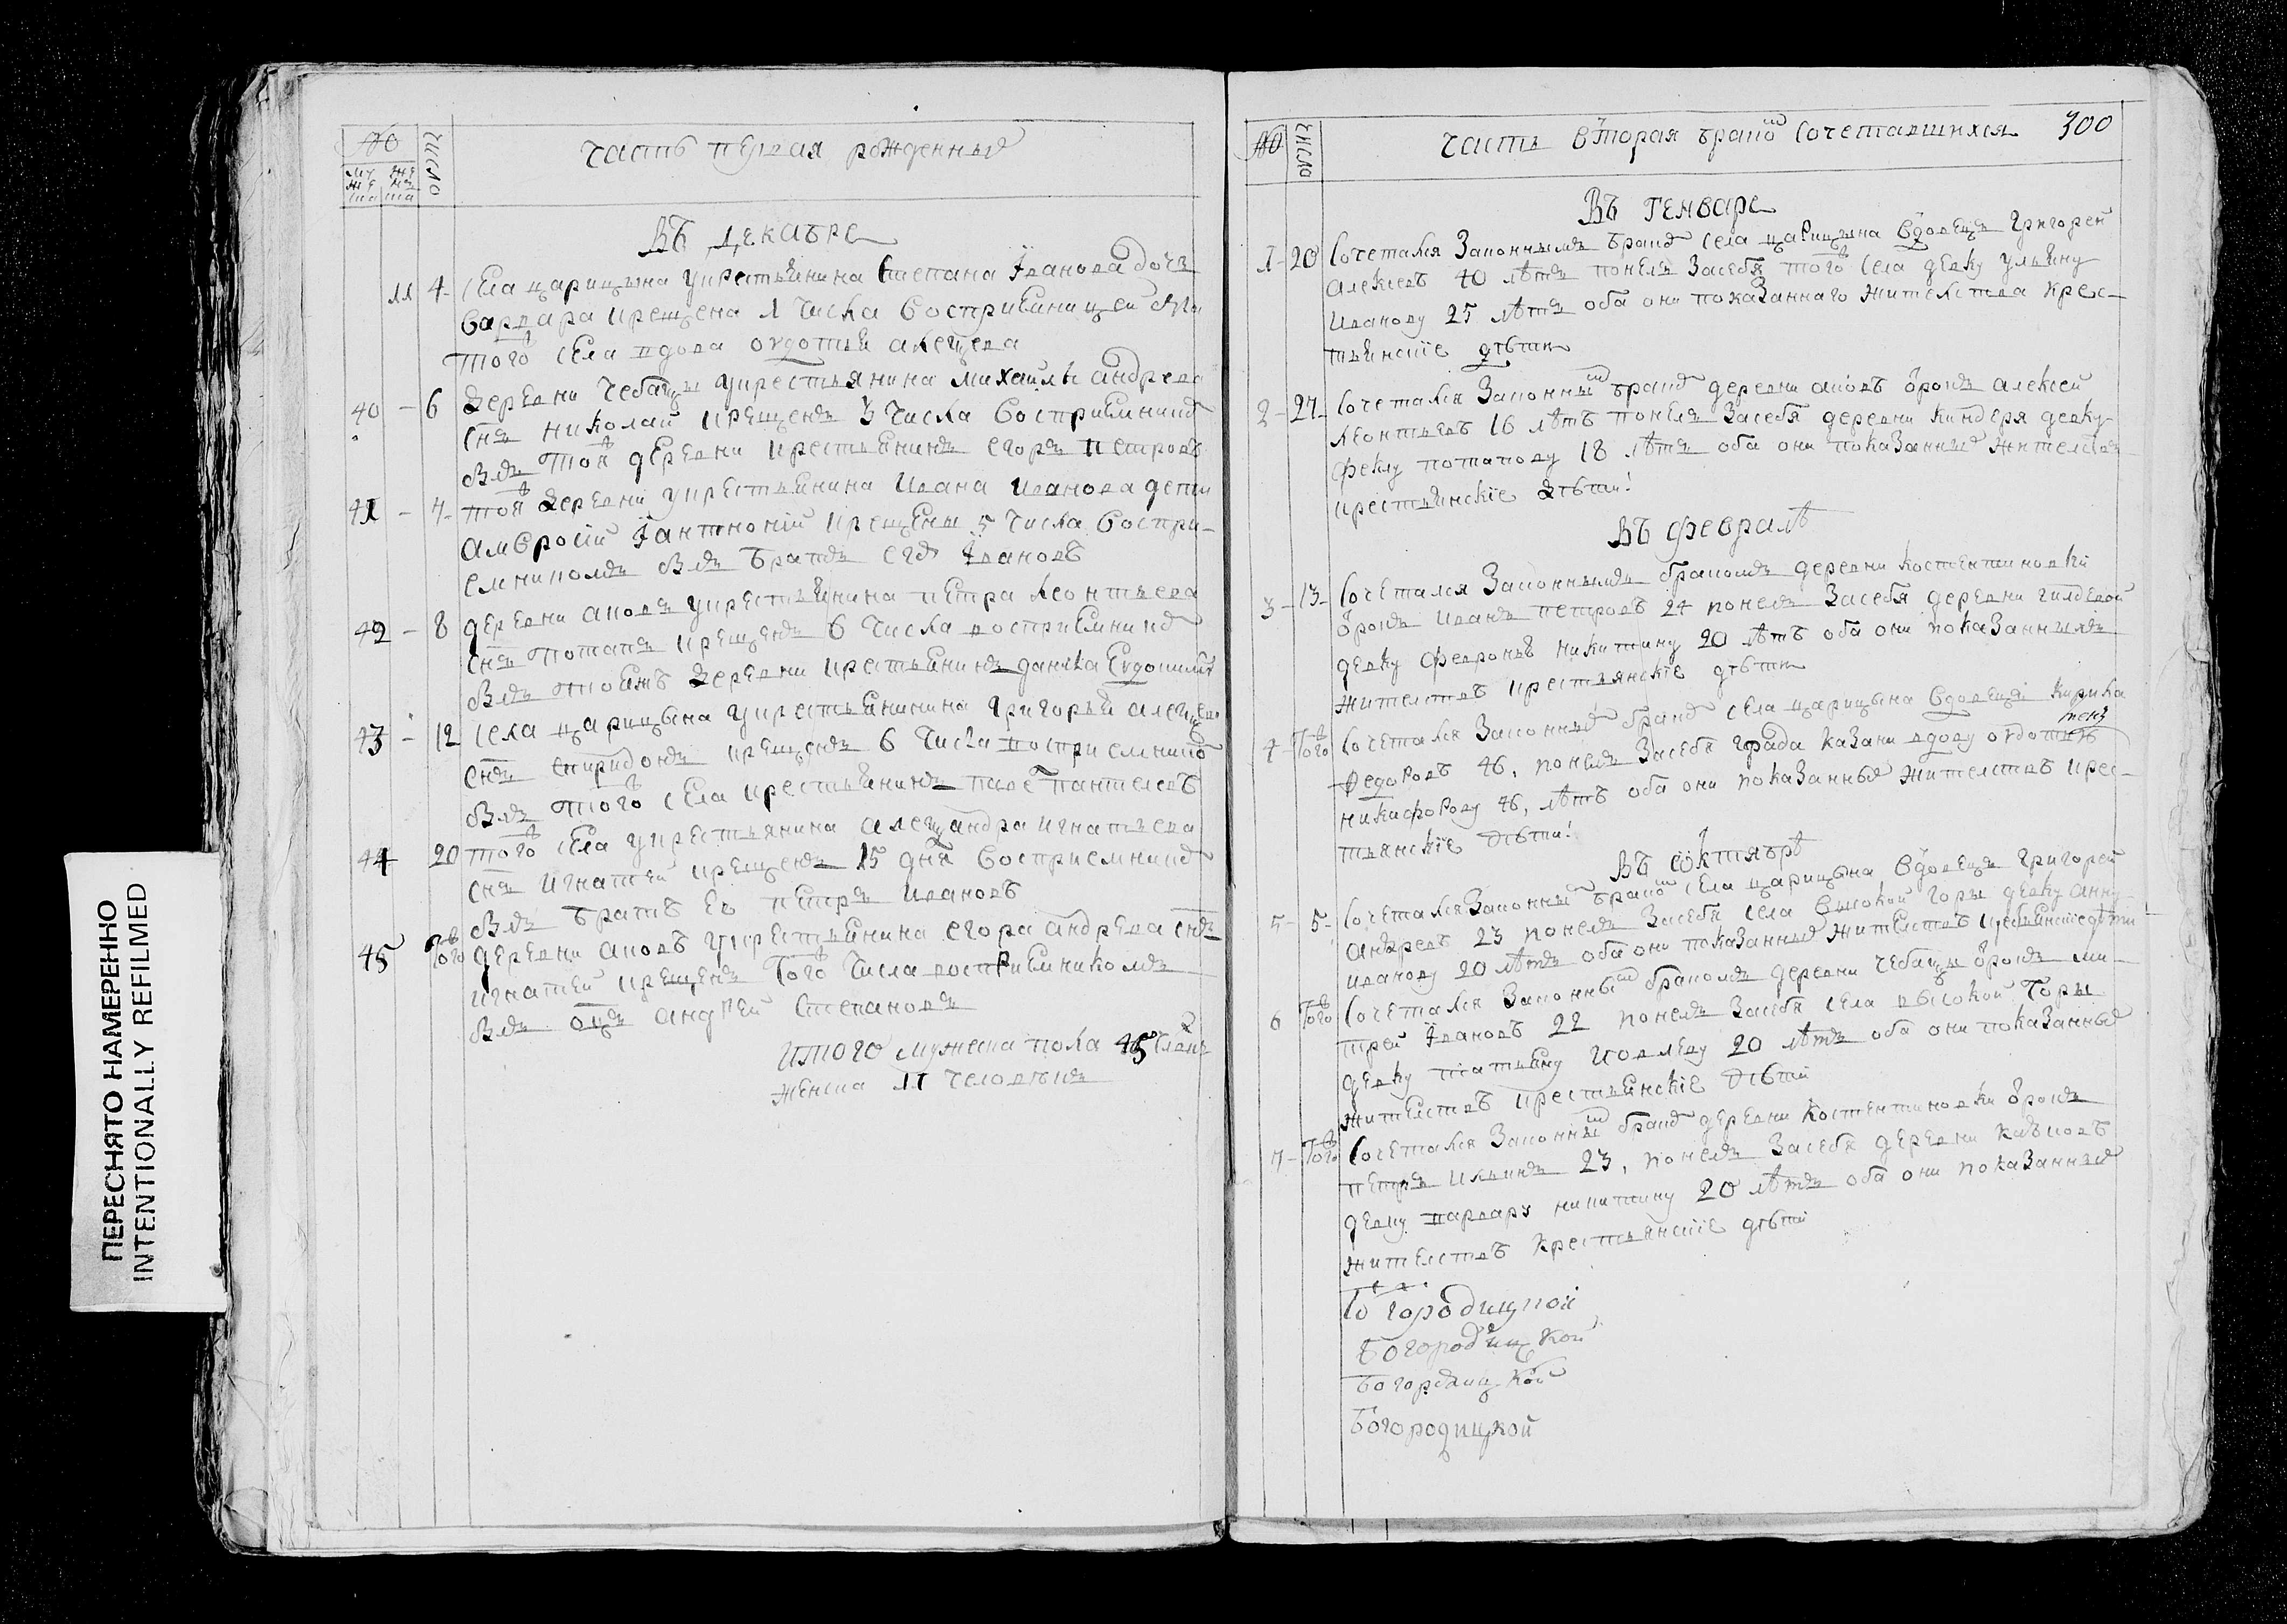 № число Часть первая рожденныѣ
муже женз
ска ска
Въ декабре
11 4 Села царицына укрестьянина Степана Iванова дочь
варвара крещена 1 числа восприемницей была
того села вдова овдотья
40 - 6 деревни Чебаксы укрестьянина михаилы андреева
снъ николай крещенъ 3 числа восприемникомъ
былъ той деревни крестьянинъ егоръ петровъ
41 - 7 той деревни укрестьянина ивана иванова дети
амвросiй Iантнонiй крещены 5 числа воспри-
емникомъ былъ братъ его Iвановъ
42 - 8 деревни аковъ укрестьянина петра леонтьева
снъ потапъ крещенъ 6 числа восприемникъ
былъ тоежъ деревни крестьянинъ данила
43 - 12 села царицына укрестьянинина григорья
снъ спиридонъ крещенъ 6 числа восприемникъ
былъ того села крестьянинъ паве пантелеевъ
44 20 того села укрестьянина александра игнатьева
снъ игнатей крещенъ 15 дня восприемникъ
былъ братъ ево петръ ивановъ
45 того деревни аковъ укрестьянина егора андреева снъ
игнатей крещенъ того числа восприемникомъ
былъ оцъ андрей степановъ
итого мужеска пола 45 человкъ
женска 11 человѣкъ
№ число Часть вторая брако сочетавшихся 300
Въ генваре
1 - 20 Сочетался законнымъ бракъ села царицына вдовецъ григорей
алексеевъ 40 лѣтъ понелъ засебя того села девку ульяну
иванову 25 лѣтъ оба они показаннаго жителства крес-
тьянскiе дѣти
2 - 27 Сочетался законны бракъ деревни аковъ орокъ алексей
леонтьевъ 16 лѣтъ понелъ засебя деревни киндеря девку
феклу потапову 18 лѣтъ оба они показанныхъ жителствъ
крестьянскiе дѣти!
Въ февралѣ
3 - 13 Сочетался законнымъ бракомъ деревни костентиновки
орокъ иванъ петровъ 24 понелъ засебя деревни гилдеевой
девку февронью никитину 20 лѣтъ оба они показаннымъ
жителствъ крестьянскiе дѣти
4 - того Сочетался законны бракъ села царицына вдовецъ кирила
федоровъ 46, понелъ засебя града казани вдову овдотью
никифорову 46, лѣтъ оба они показанные жителствъ крес-
тьянскiе дѣти!
Въ октябрѣ
5 - 5 - Сочетался законны брако села царицына вдовецъ григорей
андреевъ 23 понелъ засебя села высокой горы девку анну
иванову 20 лѣтъ оба они показанные жителствъ крестьянскiе дѣти
6 того Сочетался законны бракомъ деревни чебаксы орокъ ми-
трей Iвановъ 22 понелъ засебя села высокой горы
девку татьяну иовлеву 20 лѣтъ оба они показанные
жителствъ крестьянскiе дѣти
7 - того Сочетался законны бракъ деревни костентиновки орокъ
петръ ильинъ 23, понелъ засебя деревни
девку варвару никитину 20 лѣтъ оба они показанные
жителствъ крестьянскiе дѣти
Богородицкой
Богородицкой
Богородицкой
ПЕРЕСНЯТО НАМЕРЕННО
INTENTIONALLY REFILMED